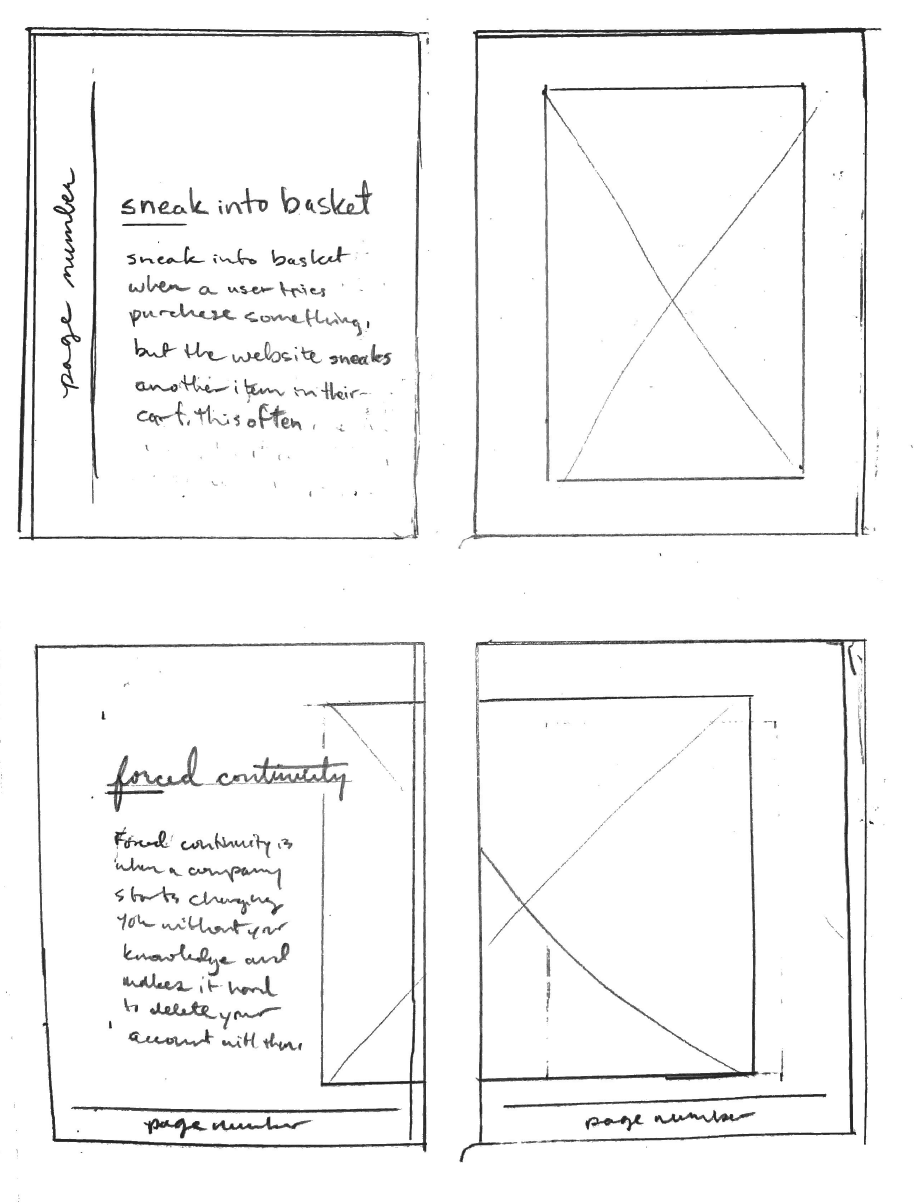 page number
sneak into basket
sneak into basket
when a user tries
purchase something,
but the website sneaks
another item in their
cart. this often
forced continuity
Forced continuity is
when a company
starts charging
you without your
knowledge and
makes it hard
to delete your
account with them.
page number
page number